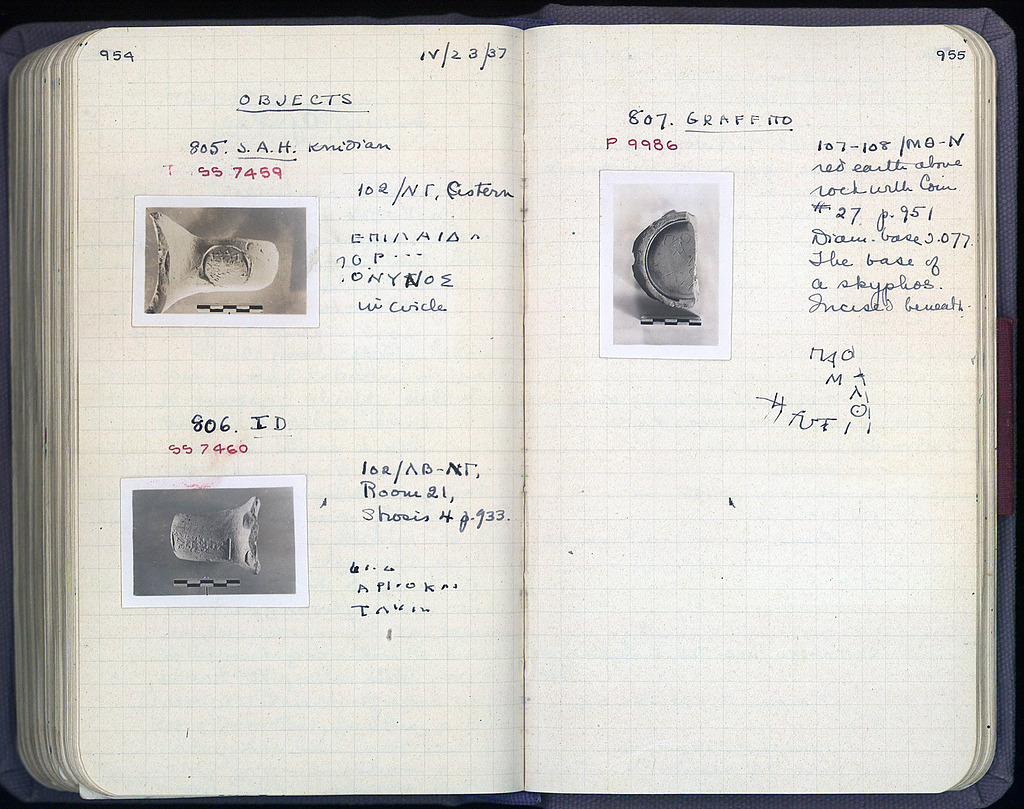 954
IV/23/37
OBJECTS
805. S.A.H. Knidian
T SS 7459
102/ΝΓ, Cistern
ΕΠΙΛΑΙΔΑ
ΟΡ...
.ΟΝΥΝΟΣ
in circle
806. ID
SS 7460
102/ΛΒ-ΝΓ,
Room 21,
Strosis 4 p.933.
ΤΑ
955
807. GRAFFITO
P 9986
107-108/ΜΘ-Ν
red earth above
rock with Coin
#27 p.951
Diam. base 0.077.
The base of
a skyphos.
Incised beneath.